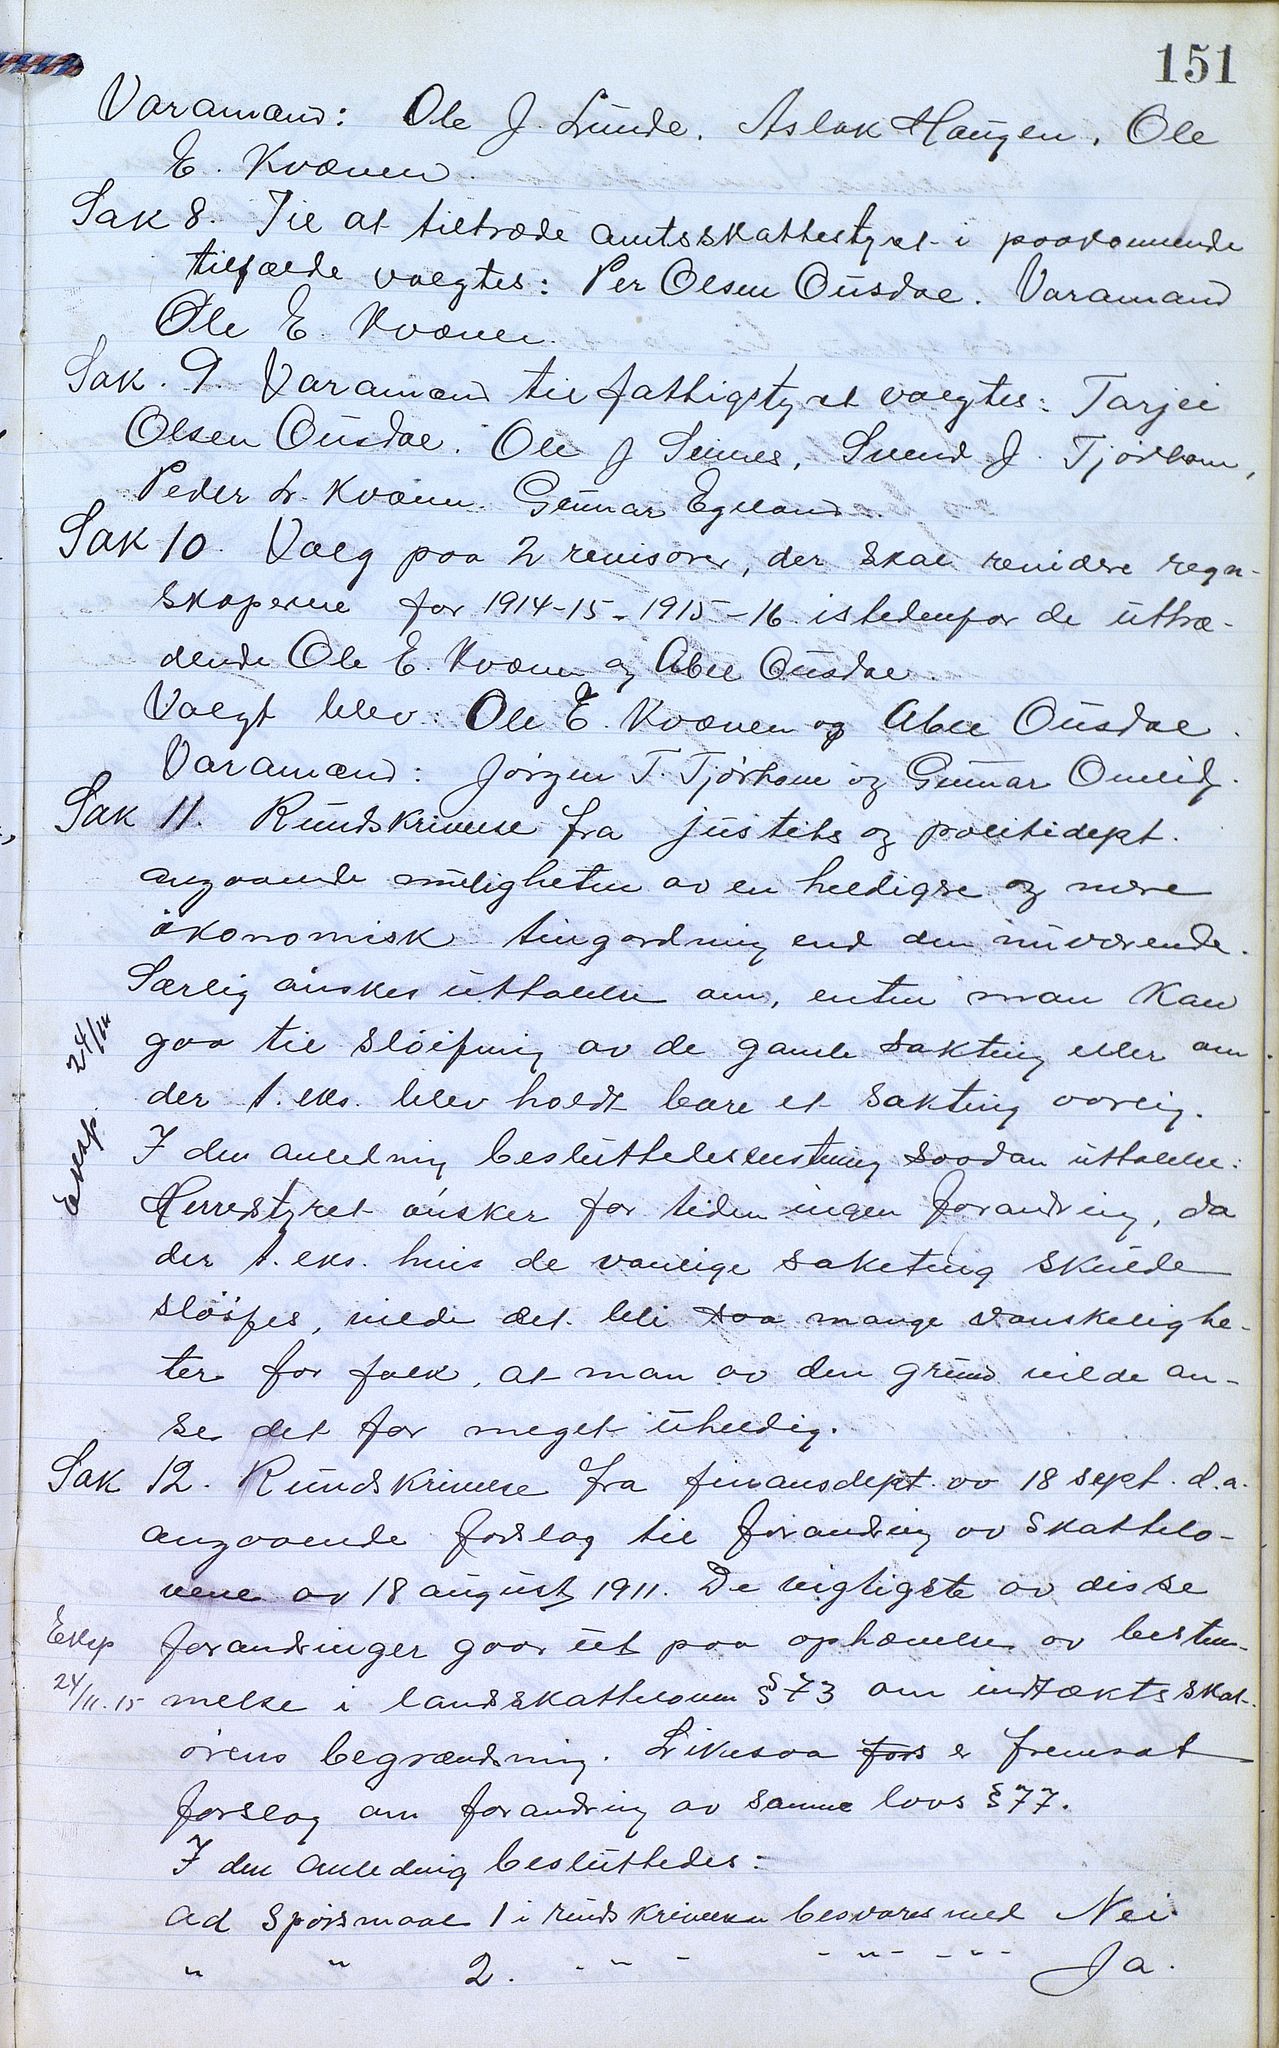 151
Varamænd: Ole J. Lunde. Aslak Haugen. Ole
E. Kvænen.
Sak 8. Til at tiltræde amtsskattestyret i paakommende
tilfælde valgtes: Per Olsen Ousdal. Varamand
Ole E. Kvænen.
Sak. 9. Varamænd til fattigstyret valgtes: Tarjei
Olsen Ousdal. Ole J Sinnes, Svend J. Tjørhom,
Peder L. Kvænn. Gunnar Egeland.
Sak 10. Valg paa 2 revisorer, der skal revidere regn-
skaperne for 1914-15 - 1915-16 istedenfor de uttræ-
dende Ole E. Kvænen og Abel Ousdal.
Valgt blev: Ole E. Kvænen og Abel Ousdal.
Varamænd: Jørgen T. Tjørhom og Gunnar Omlid.
Sak 11. Rundskrivelse fra justits og politidept.
angaaende muligheten av en heldigre og mere
økonomisk tingordning end den nuværende.
Særlig ønskes uttalelse om, enten man kan
gaa til sløifning av de gamle sakting eller om
der t. eks. blev holdt bare et sakting aarlig.
Eksp. 24/11
I den anledning besluttedes enstemmig saadan uttalelse:
Herredstyret ønsker for tiden ingen forandring, da
der t. eks. hvis de vanlige sakting skulde
sløifes, vilde det bli saa mange vanskelighe-
ter for folk, at man av den grund vilde an-
se det for meget uheldig.
Sak 12. Rundskrivelse fra finansdept. av 18 sept. d.a.
angaaende forslag til forandring av skattelo-
vene av 18 august 1911. De vigtigste av disse
Eksp forandringer gaar ut paa ophævelse av bestem-
24/11.15 melse i landsskatteloven § 73 om indtæktsskat-
ørens begrændsning. Likesaa fors er fremsat
forslag om forandring av samme lovs § 77.
I den anledning besluttedes:
Ad spørsmaal 1 i rundskrivelsen besvares med Nei.
" " 2. - " - - " - - " - Ja.